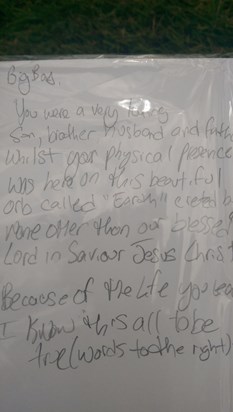 Big Bos.
You were a very loving
Son, brother Husband and Fath
Whilst your physical presence
was here on this beautiful
orb called "Earth" created b
none other than our blessed
Lord in Saviour Jesus Christ
Because of the Life you lea
I know this all to be
true (words to the right)